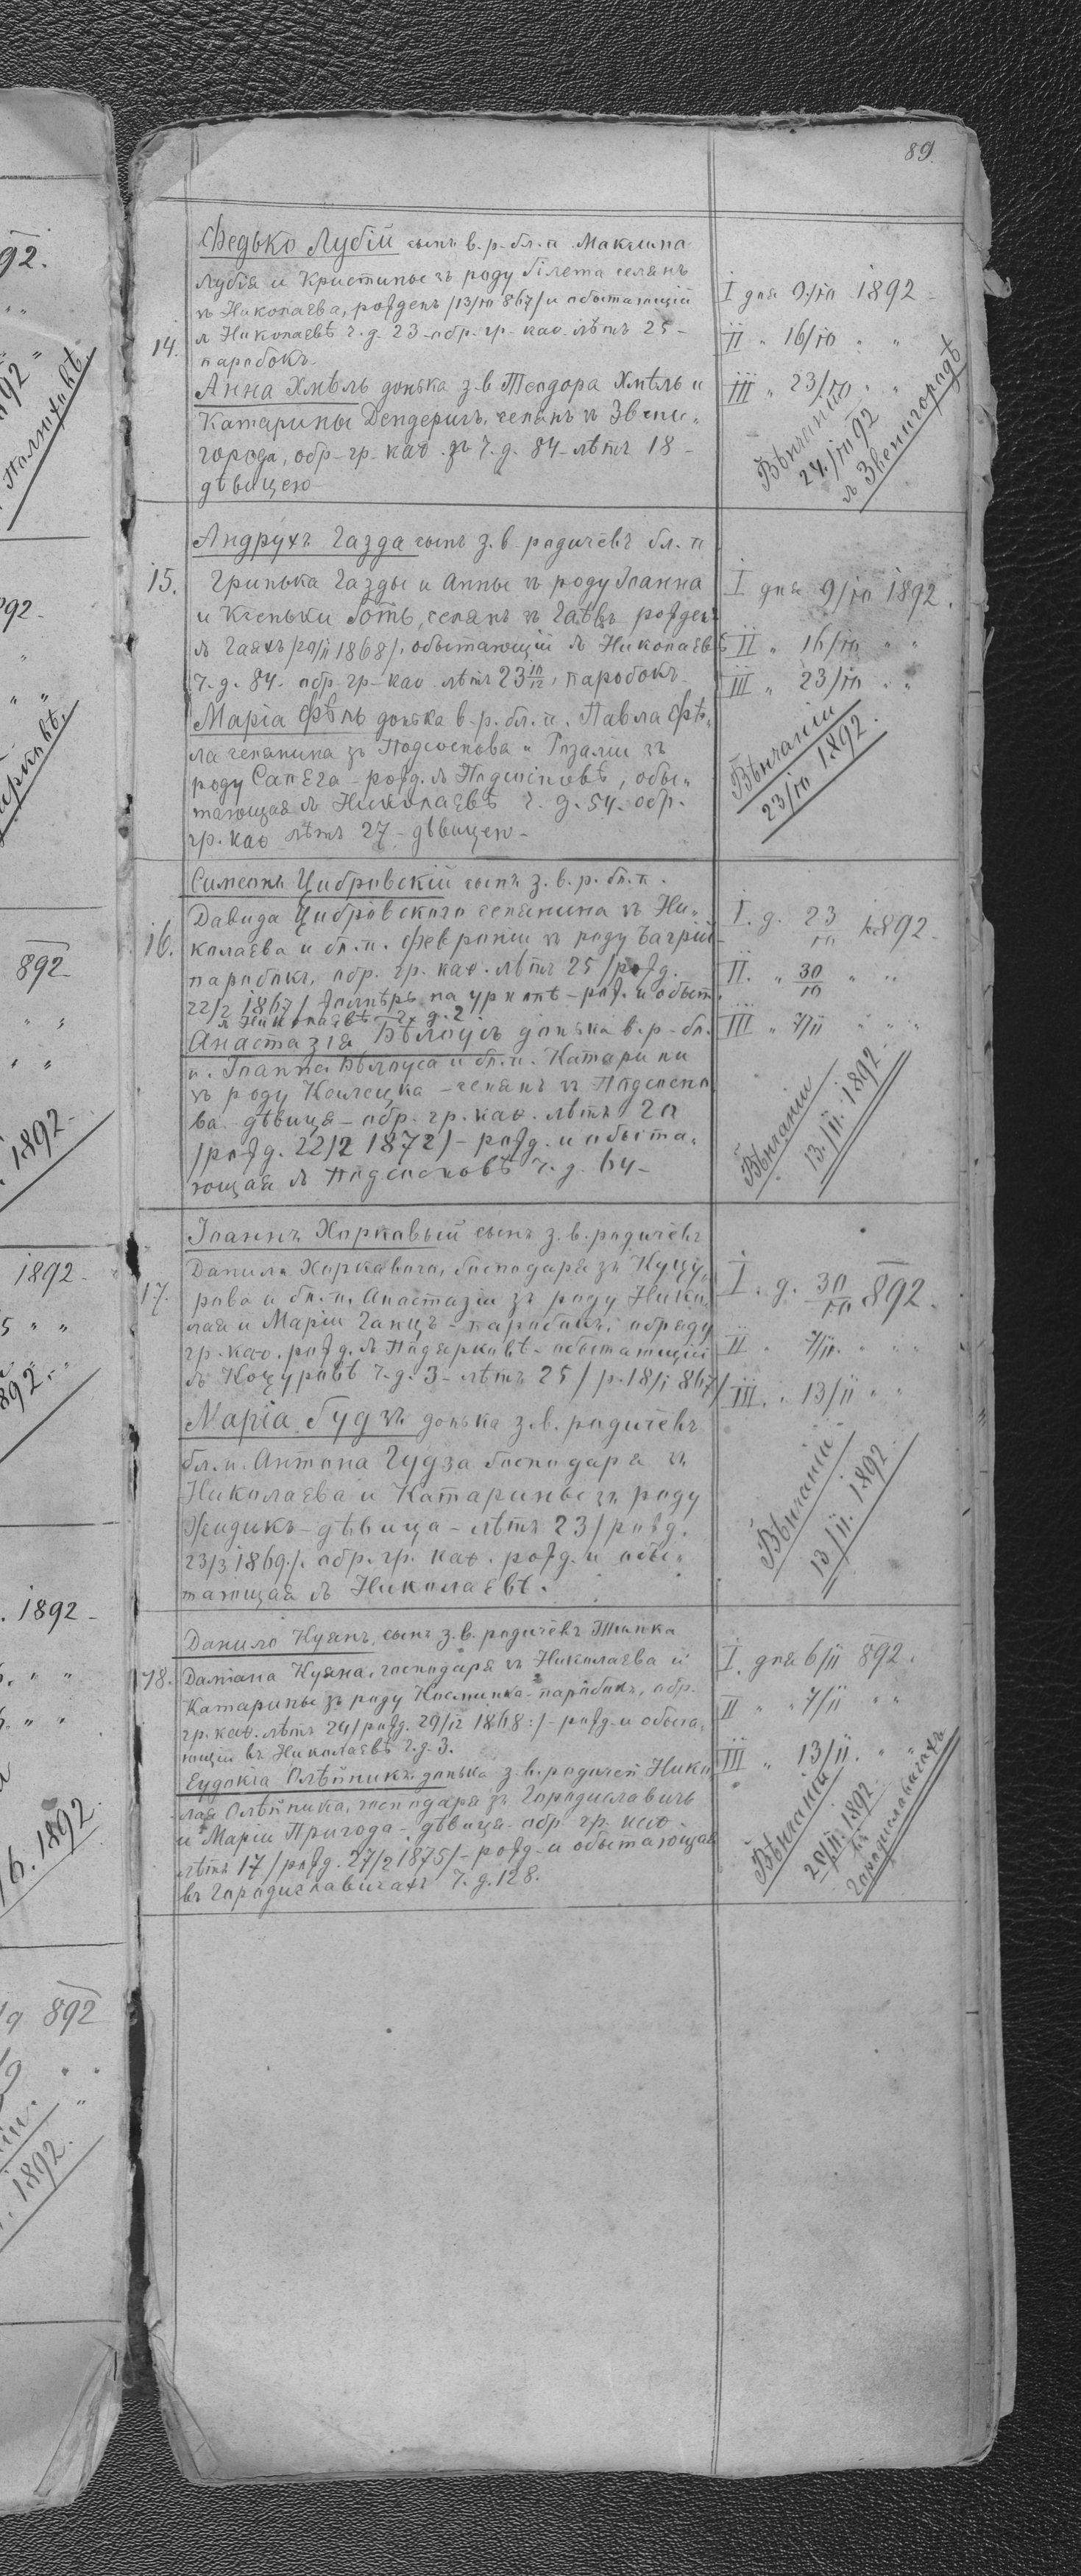 89.
14.
Федько Лубій сынъ в. р. бл. п. Максима
Лубія и Кристины зъ роду Гілета селянъ
зъ Николаева, рожденъ /13/10 867/ и обытающій
въ Николаевѣ ч. д. 23 обр. гр. каѳ. лѣтъ 25 -
паробокъ.
Анна Хмѣль донька з. в. Теодора Хмѣль и
Катарины Дендеричъ, селянъ зъ Звени-
города, обр. гр. каѳ. зъ ч. д. 84 лѣтъ 18 -
дѣвицею
I дня 9/10 1892
II " 16/10 " "
III " 23/10 " "
Вѣнчаній
24/10 92
въ Звенигородѣ
15.
Андрухъ Газда сынъ з. в. родичѣвъ бл. п.
Гринька Газды и Анны зъ роду Іоанна
и Ксеньки Готь, селянъ зъ Гаѣвъ рожденъ
въ Гаяхъ 1868/, обытающій въ Николаевѣ
ч. д. 84. обр. гр. каѳ. лѣтъ 23 10/12, паробокъ.
Марія Фѣль донька в. р. бл. п. Павла Фѣ-
ла селянина зъ Подсоснова и Розаліи зъ
роду Сапега - рожд. въ Подсосновѣ, обы-
тающая въ Николаевѣ ч. д. 54. обр.
гр. каѳ. лѣтъ 27 - дѣвицею -
I дня 9/10 1892.
II " 16/10 " "
III " 23/10 " "
Вѣнчаніи
23/10 1892.
16.
Симеонъ Цибровскій сынъ з. в. р. бл. п.
Давида Цибровского селянина зъ Ни-
колаева и бл. п. Февроніи зъ роду Багрій
паробокъ, обр. гр. каѳ. лѣтъ 25 /рожд.
22/2 1867/ на урлопѣ - рож. и обыт.
в Николаевѣ ч. д. 2.
Анастазія Бѣлоусъ донька в. р. бл.
п. Іоанна Бѣлоуса и бл. п. Катарини
зъ роду - селянъ зъ Подсосно
ва. дѣвиця - обр. гр. каѳ. лѣтъ 20
/рожд. 22/2 1872/ - рожд. и обыта-
ющая въ Подсосновѣ ч. д. 64 -
I. д. 23/10 1892 -
II. " 30/10 " "
III " 7/11 " "
Вѣнчаніи
13./11. 1892.
17.
Іоаннъ Харкавый сынъ з. в. родичѣвъ
Данила Харкавого, господаря зъ Куцу-
рова и бл. п. Анастазіи зъ роду Нико-
лая и Маріи Ганцъ - паробокъ, обряду
гр. каѳ. рожд. въ Подярковѣ - обытающій
въ Коцуровѣ ч. д. 3 - лѣтъ 25 / р. 18/1 867/
Марія Гудзъ донька з. в. родичѣвъ
бл. п. Антона Гудза господаря зъ
Николаева и Катарины зъ роду
Жидикъ - дѣвица - лѣтъ 23 /рожд.
23/3 1869./. обр. гр. каѳ. рожд. и обы-
тающая въ Николаевѣ.
I. д. 30/10 892.
II " 7/11. " "
III. " 13/11 " "
Вѣнчаніи
13/11. 1892
18.
Данило Куянъ, сынъ з. в. родичѣвъ
Даміана Куяна, господаря зъ Николаева и
Катарины зъ роду - паробокъ, обр.
гр. каѳ. лѣтъ 24 /рожд. 29/12 1868:/ - рожд. и обыта-
ющій въ Николаевѣ ч. д. 3.
Еудокія Олѣйникъ донька з. в. родичей Нико
лая Олѣйника, господаря зъ Городиславичъ
и Маріи Пригода - дѣвиця - обр. гр. каѳ.
лѣтъ 17 /рожд. 27/2 1875/ - рожд. и обытающая
въ Городиславичахъ ч. д. 128.
I. дня 6/11 892.
II " 7/11 " "
III " 13/11. " "
Вѣнчаніи
20/11. 1892.
въ
Городиславичахъ